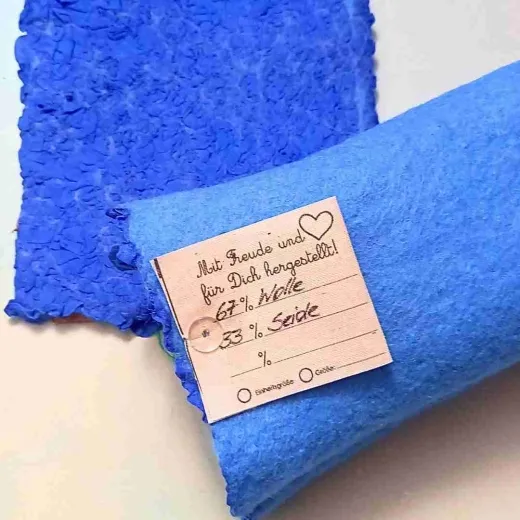 Mit Freude und
für Dich hergestellt!
67 % Wolle
33 % Seide
%
Einheitsgröße Größe: